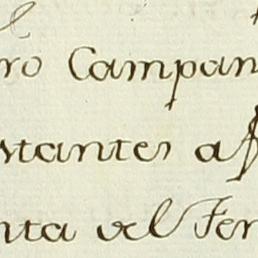 ro Campan
stantes af
nta del Fer